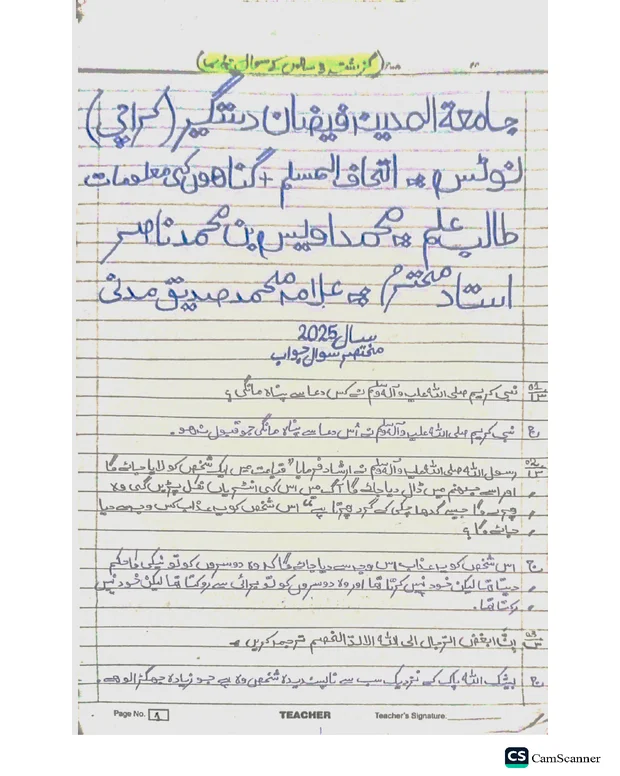 (گزشتہ 5 سالوں کے سوال جواب)
جامعۃ المدینہ فیضان دستگیر (کراچی)
نوٹس :- اتحاف المسلم + گناھوں کی معلومات
طالب علم :- محمد اویس بن محمد ناصر
استاد محترم :- علامہ محمد صدیق مدنی
سال 2025
مختصر سوال جواب
نبی کریم صلی اللہ علیہ وآلہ وسلم نے کس دعا سے پناہ مانگی؟
ج نبی کریم صلی اللہ علیہ وآلہ وسلم نے اُس دعا سے پناہ مانگی جو قبول نہ ھو۔
رسول اللہ صلی اللہ علیہ وآلہ وسلم نے ارشاد فرمایا "قیامت میں ایک شخص کو لایا جائے گا
اور اسے جہنم میں ڈال دیا جائے گا آگ میں اس کی انتڑیاں نکل پڑیں گی وہ
پھرے گا جیسے گدھا چکی کے گرد پھرتا ہے" اس شخص کو یہ عذاب کس وجہ سے دیا
جائے گا؟
ج اس شخص کو یہ عذاب اس وجہ سے دیا جائے گا کہ وہ دوسروں کو تو نیکی کا حکم
دیتا تھا لیکن خود نہیں کرتا تھا اور وہ دوسروں کو تو برائی سے روکتا تھا لیکن خود نہیں
رکتا تھا۔
اِنَّ ابغض الرجال الی اللہ الالد الخصم ترجمہ کریں۔
ج بیشک اللہ پاک کے نزدیک سب سے ناپسندیدہ شخص وہ ہے جو زیادہ جھگڑالو ھے۔
Page No. 1 TEACHER Teacher's Signature.
CS CamScanner